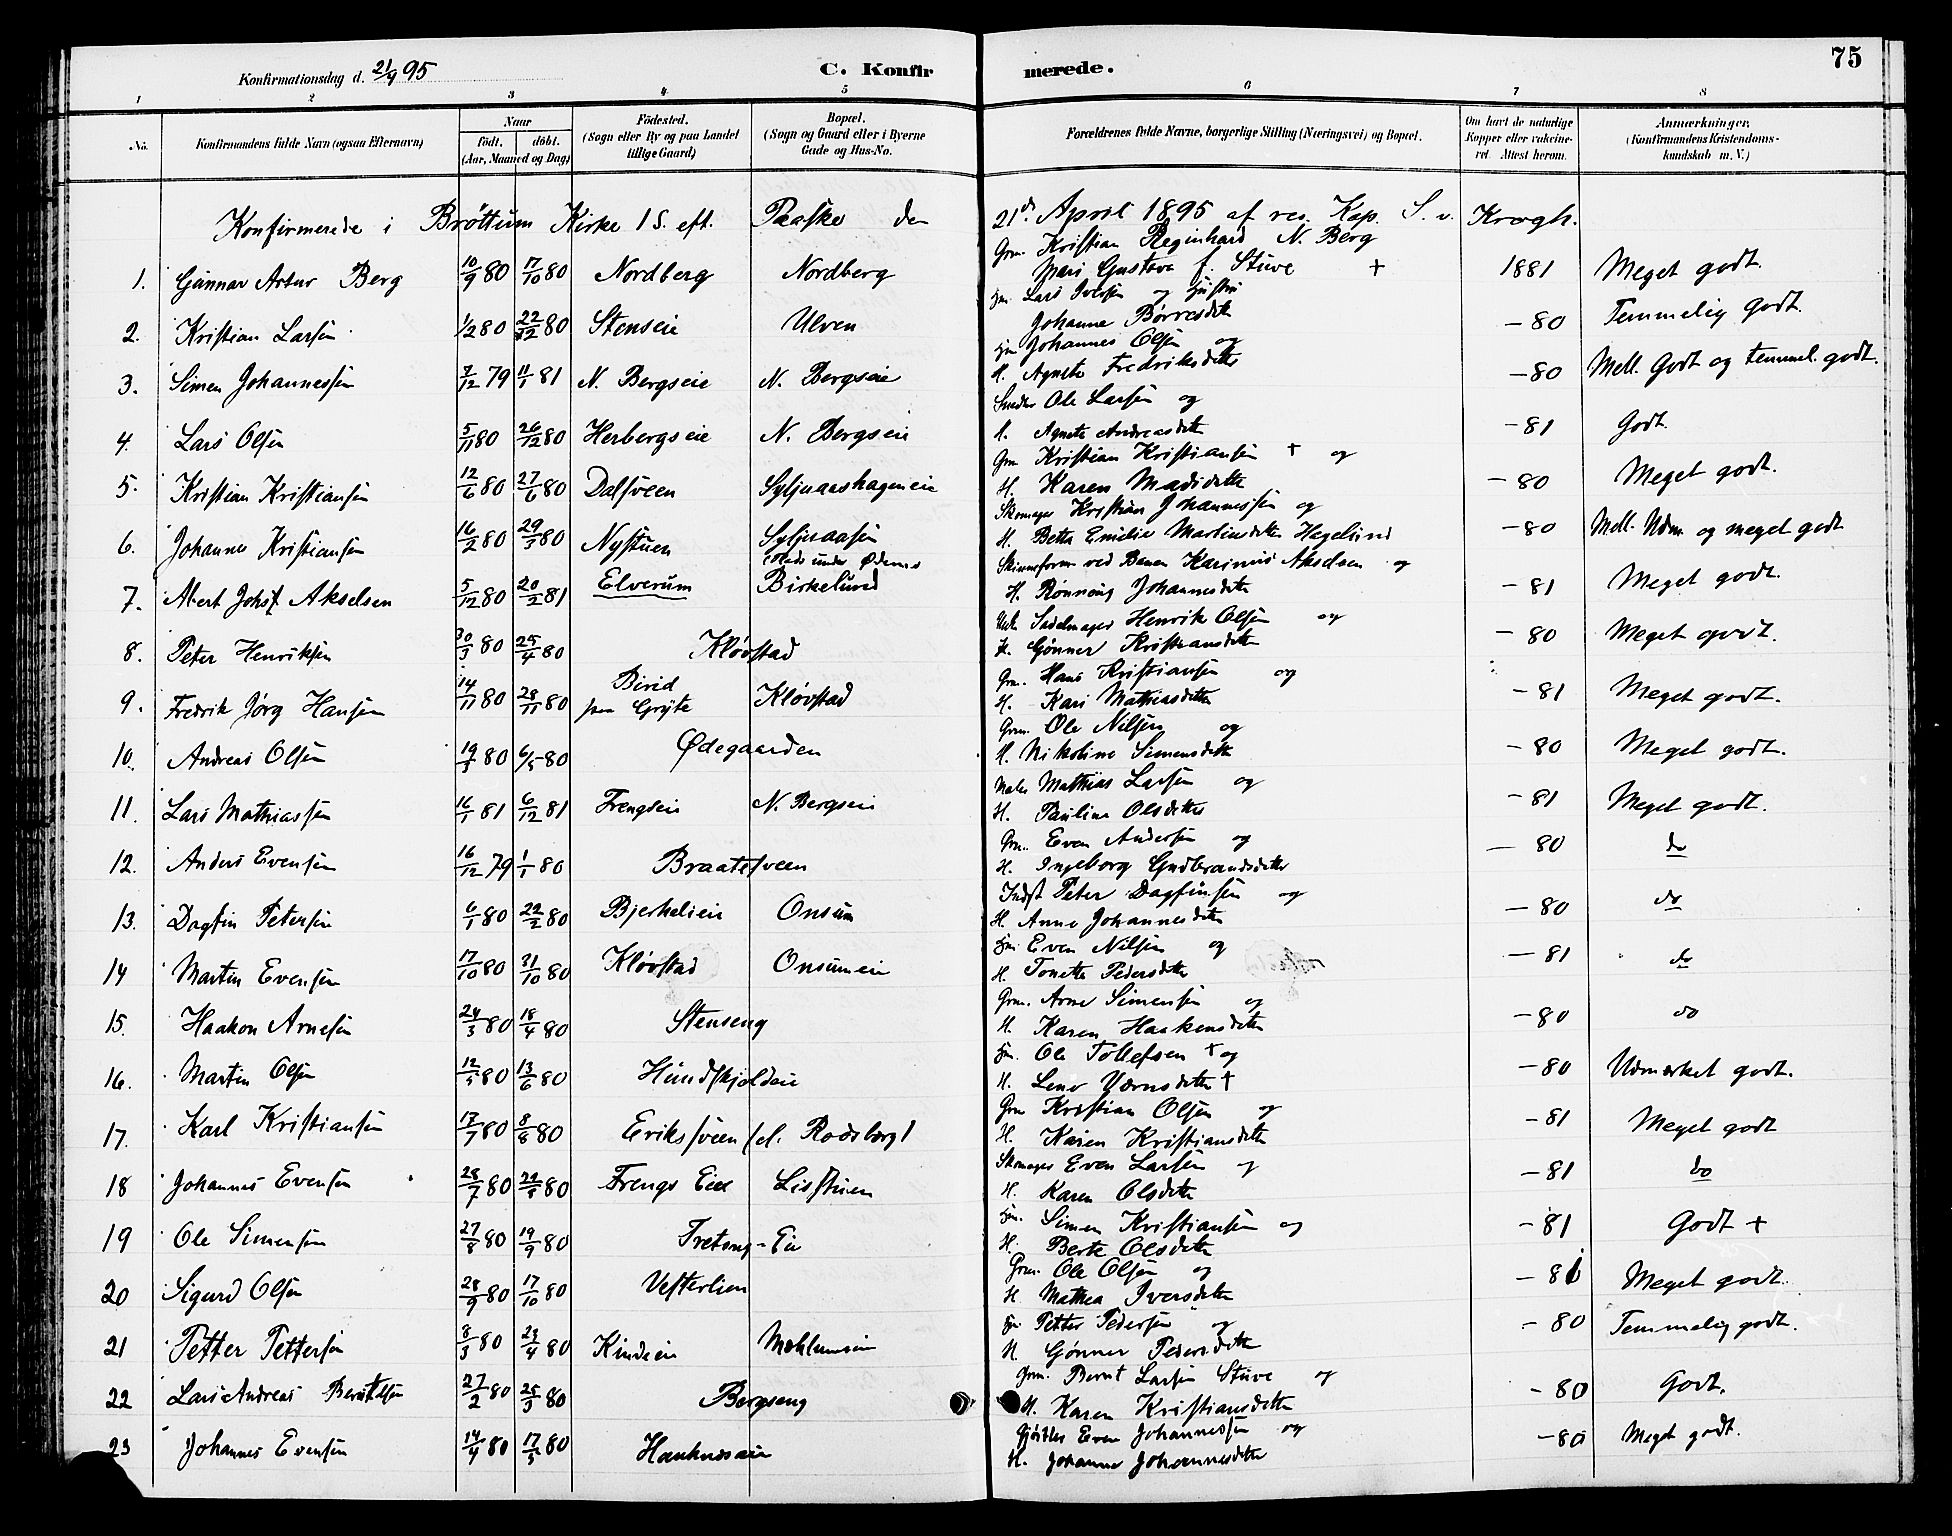 75
Konfirmationsdag d. 21/4 95
C. Konfirmerede.
1 2 3 4 5 6 7 8
No. Konfirmandens fulde Navn (ogsaa Efternavn) Naar födt. döbt. (Aar, Maaned og Dag) Födested. (Sogn eller By og paa Landet tillige Gaard) Bopæl. (Sogn og Gaard eller i Byerne Gade og Hus-No. Forældrenes fulde Navne, borgerlige Stilling (Næringsvei) og Bopæl. Om havt de naturlige Kopper eller vakcineret. Attest herom. Anmærkninger. (Konfirmandens Kristendomskundskab m. V.)
Konfirmerede i Bröttum Kirke 1 S. eft. Paaske den 21de April 1895 af res. Kap. S. v. Krogh.
Grm. Kristian Reginhard N. Berg
1. Gunnar Artur Berg 10/9 80 17/10 80 Nordberg Nordberg Mari Gustava f. Stuve + 1881 Meget godt.
Lars Iversen og Hustru
2. Kristian Larsen 1/2 80 22/2 80 Stenseie Ulven Johanne Börresdtr - 80 Temmelig godt.
Johannes Olsen og
3. Simen Johannessen 3/12 79 11/1 81 N. Bergseie N. Bergseie H. Agnete Fredriksdatter - 80 Mell. Godt og temmel. godt.
Snedker Ole Larsen og
4. Lars Olsen 5/11 80 26/12 80 Herbergseie N. Bergseie H. Agnete Andreasdatter - 81 Godt.
Grm Kristian Kristiansen + og
5. Kristian Kristiansen 12/6 80 27/6 80 Dalsveen Syljuaashageneie H. Karen Madsdatter - 80 Meget godt.
Skomager Kristian Johannessen og
6. Johannes Kristiansen 16/2 80 29/3 80 Nystuen Syljuaasen H. Betta Emilie Martinsdatter Hagelund - 80 Mell. Udm. og meget godt
(Plads under Ødems
Skinneform. ved Banen Karinius Akselsen og
7. Albert Johs. Akselsen 5/12 80 20/2 81 Elverum Birkelund H. Rönnaug Johannesdatter - 81 Meget godt.
Sadelmager Henrik Olsen og
8. Peter Henriksen 30/3 80 25/4 80 Klövstad H. Gönner Kristiansdatter - 80 Meget godt.
Grm. Hans Kristiansen og
9. Fredrik Jörg Hansen 14/11 80 28/11 80 Birid paa Gryte Klövstad H. Kari Mathiasdatter - 81 Meget godt.
Grm. Ole Nilsen og
10. Andreas Olsen 19/3 80 6/5 80 Ødegaarden H. Nikoline Simensdatter - 80 Meget godt.
Maler Mathias Larsen og
11. Lars Mathiassen 16/1 81 6/12 81 Frengseie N. Bergseie H. Pauline Olsdatter - 81 Meget godt.
Grm. Even Andersen og
12. Anders Evensen 16/12 79 1/1 80 Braatesveen H. Ingeborg Gudbrandsdatter - 80 do
Indst Peter Dagfinsen og
13. Dagfin Petersen 6/1 80 22/2 80 Bjerkelieie Onsum H. Anne Johannesdatter - 80 do
Even Nilsen og
14 Martin Evensen 17/10 80 31/10 80 Klövstad Onsumeie H. Tonette Pedersdatter - 81 do
Grm. Arne Simensen og
15. Haakon Arnesen 24/3 80 18/4 80 Stenseng H. Karen Haakensdatter - 80 do
Ole Tollefsen + og
16. Martin Olsen 12/5 80 13/6 80 Hundskjoldeie H. Lene Værnsdatter + - 80 Udmærket godt.
Grm Kristian Olsen og
17. Karl Kristiansen 17/7 80 8/8 80 Eriksveen (el. Rodsberg) H. Karen Kristiansdatter - 81 Meget godt
Skomager Even Larsen og
18 Johannes Evensen 28/7 80 22/8 80 Frengs Eie Lisstuen H. Karen Olsdatter - 81 do
Simen Kristiansen og
19 Ole Simensen 27/8 80 19/9 80 Treteng-Eie H. Berte Olsdatter - 81 Godt +
Grm. Ole Olsen og
20 Sigurd Olsen 28/9 80 17/10 80 Vesterlien H. Mathea Iversdatter - 81 Meget godt.
Petter Pedersen og
21 Petter Pettersen 8/3 80 23/4 80 Kindeie Mæhlumseie H. Gönner Pedersdatter - 80 Temmelig godt.
Grm. Bernt Larsen Stuve og
22 Lars Andreas Berntsen 27/2 80 25/3 80 Bergseng H. Karen Kristiansdatter - 80 Godt.
Even Johannessen og
23 Johannes Evensen 14/4 80 17/5 80 Haukneseie H. Johanne Johannesdatter - 80 Meget godt.